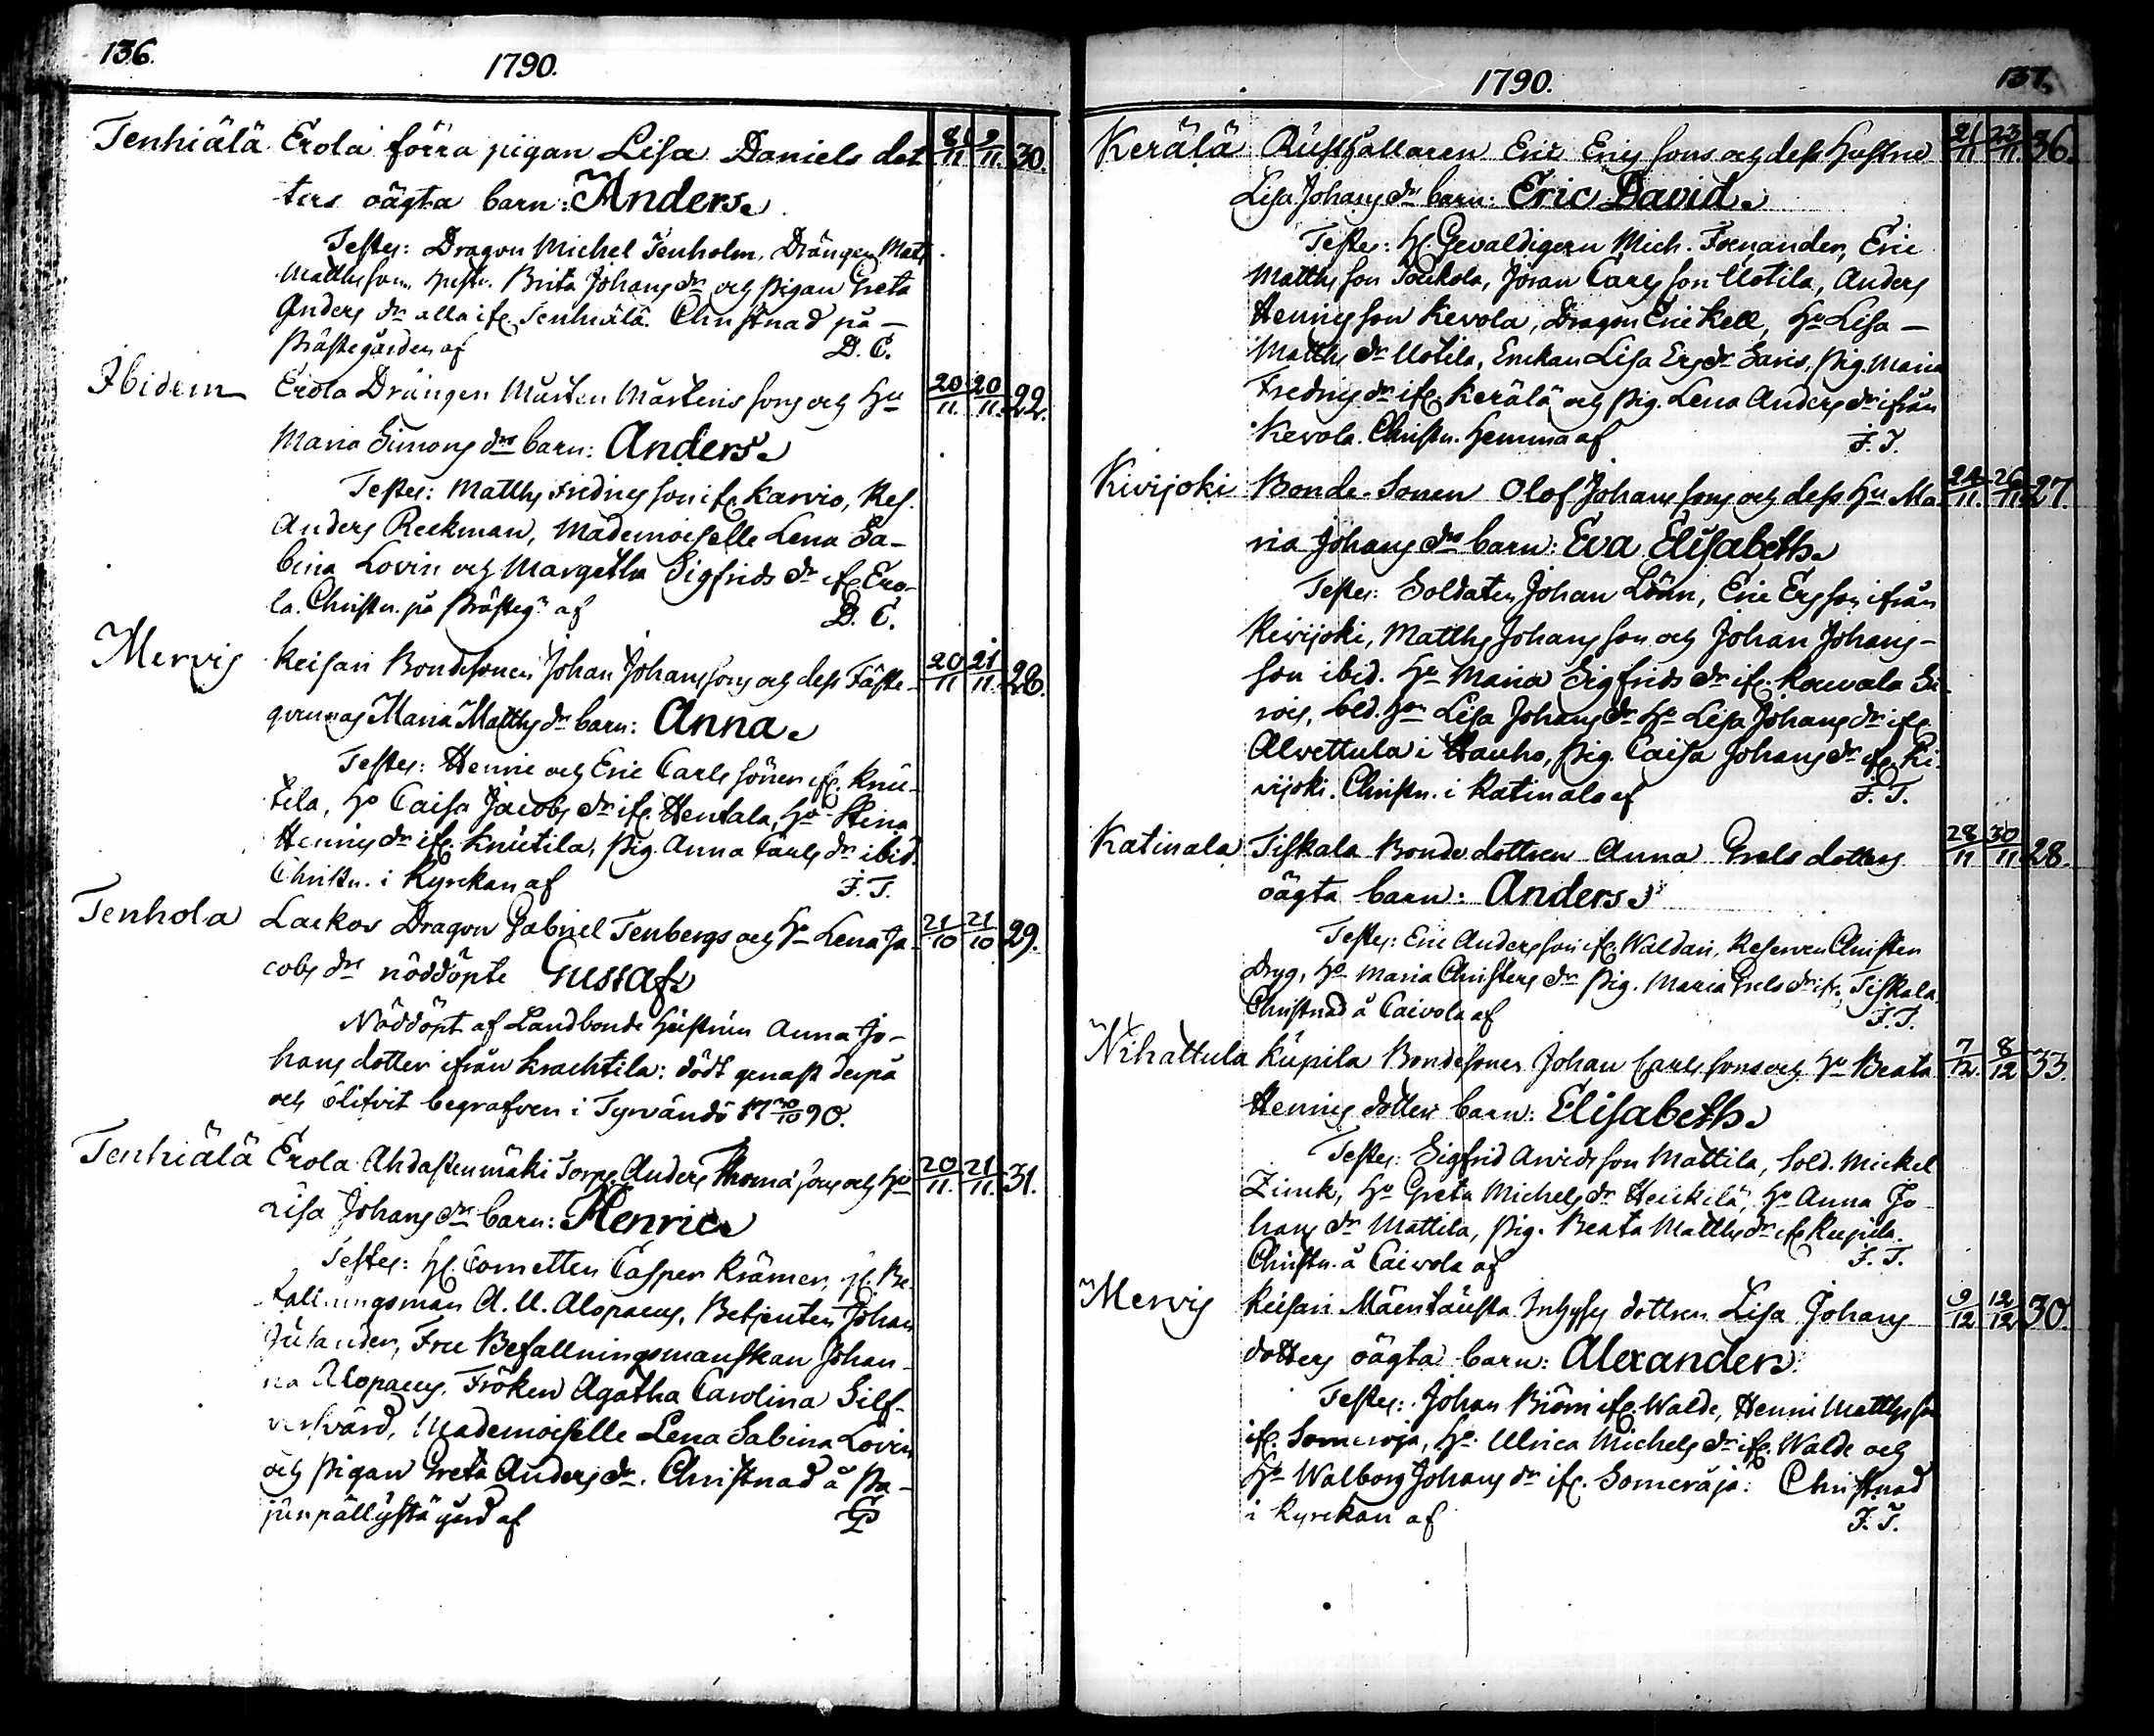 136.
1790.
Tenhiälä Erola förra pigan Lisa Daniels dot 8/11 9/11 30.
ters oägta barn: Anders.
Testes: Dragon Michel Tenholm, Drängen Matts
Matthsson, hustr. Brita Johans dr och Pigan Greta
Anders dr alla ifr. Tenhiälä. Christnad på –
Prästegården af D. C.
Ibidem Erola Drängen Mårten Mårtens sons och Hu 20/11. 20/11. 22.
Maria Simons drs barn: Anders.
Testes: Matths Fredrics son ifr. Karvio, Res.
Anders Reckman, Mademoiselle Lena Sa–
bina Lovin och Margetha Sigfrids dr ifr. Ero–
la. Christn. på Prästeg. af D. C.
Mervis Keisari Bondesonen Johan Johans sons och dess Fäste– 20/11 21/11. 28.
qvinnas Maria Matths dr barn: Anna.
Testes: Henric och Eric Carls söner ifr. Knu–
tila, Hu Caisa Jacobs dr ifr. Hentala, Hu Stina
Henrics dr ifr. Knutila, Pig. Anna Carls dr ibid.
Christn. i Kyrckan af F. T.
Tenhola Lackos Dragon Gabriel Tenbergs och Hu Lena Ja– 21/10 21/10 29.
cobs drs nöddöpte Gustaf.
Nöddöpt af Landbonde Hustrun Anna Jo–
hans dotter ifrån Krachtila: dödt genast derpå
och blifvit begrafven i Tyrvändö 17 30/10 90.
Tenhiälä Erola Ahdastenmäki Torp. Anders Thomæ sons och Hu 20/11. 21/11. 31.
Lisa Johans drs barn: Henric.
Testes: H. Cornetten Casper Krämer, H. Be–
fallningsman A. U. Alopaeus, Betjenten Johan
Fru Befallningsmanskan Johan–
na Alopaeus, Fröken Agatha Carolina Silf–
versvärd, Mademoiselle Lena Sabina Lovin
och Pigan Greta Anders dr. Christnad å Pa–
af
137.
1790.
Kerälä Rusthållaren Eric Erics sons och dess Hustru 21/11 23/11. 36.
Lisa Johans drs barn: Eric David.
Testes: H. Gevaldigern Mich. Fornander, Eric
Matths son Toukola, Jöran Carls son Uotila, Anders
Henrics son Kevola, Dragon Eric Kell, Hu Lisa –
Matths dr Uotila, Enckan Lisa Ers dr Saris, Pig. Maria
Fredrics dr ifr. Kerälä och Pig. Lena Anders dr ifrån
Kevola. Christn. hemma af F. T.
Kivijoki Bonde-Sonen Olof Johans sons och dess Hu Ma– 24/11. 26/11. 27.
ria Johans drs barn: Eva Elisabeth.
Testes: Soldaten Johan Lönn, Eric Ers son ifrån
Kivijoki, Matths Johans son och Johan Johans–
son ibid. Hu Maria Sigfrids dr ifr. Kouvala Sai–
rois, Sold. Hu Lisa Johans dr Hu Lisa Johans dr ifr.
Alvettula i Hauho, Pig. Caisa Johans dr ifr. Ki–
vijoki. Christn. i Katinala af F. T.
Katinala Tiskala Bonde dottren Anna Grels dotters 28/11 30/11 28.
oägta barn: Anders.
Testes: Eric Anders son ifr. Waldari, Reserven Christer
Dryg, Hu Maria Christers dr Pig. Maria Grels dr ifr. Tiskala
Christnad å Caivola af F. T.
Nihattula Kupila Bondesonen Johan Carls sons och Hu Beata 7/12. 8/12 33.
Henrics dotter barn: Elisabeth.
Testes: Sigfrid Arvids son Mattila, Sold. Mickel
Zimk, Hu Greta Michels dr Heickilä, Hu Anna Jo
hans dr Mattila, Pig. Beata Matths dr ifr. Kupila.
Christn. å Caivola af F. T.
Mervis Keisari Mäentausta Inhyses dottren Lisa Johans 9/12 12/12 30.
dotters oägta barn: Alexander.
Testes: Johan Biörn ifr. Walde, Henric Matths son
ifr. Someroja, Hu. Ulrica Michels dr ifr. Walde och
Hu Walborg Johans dr ifr. Someroja: Christnad
i Kyrckan af F. T.